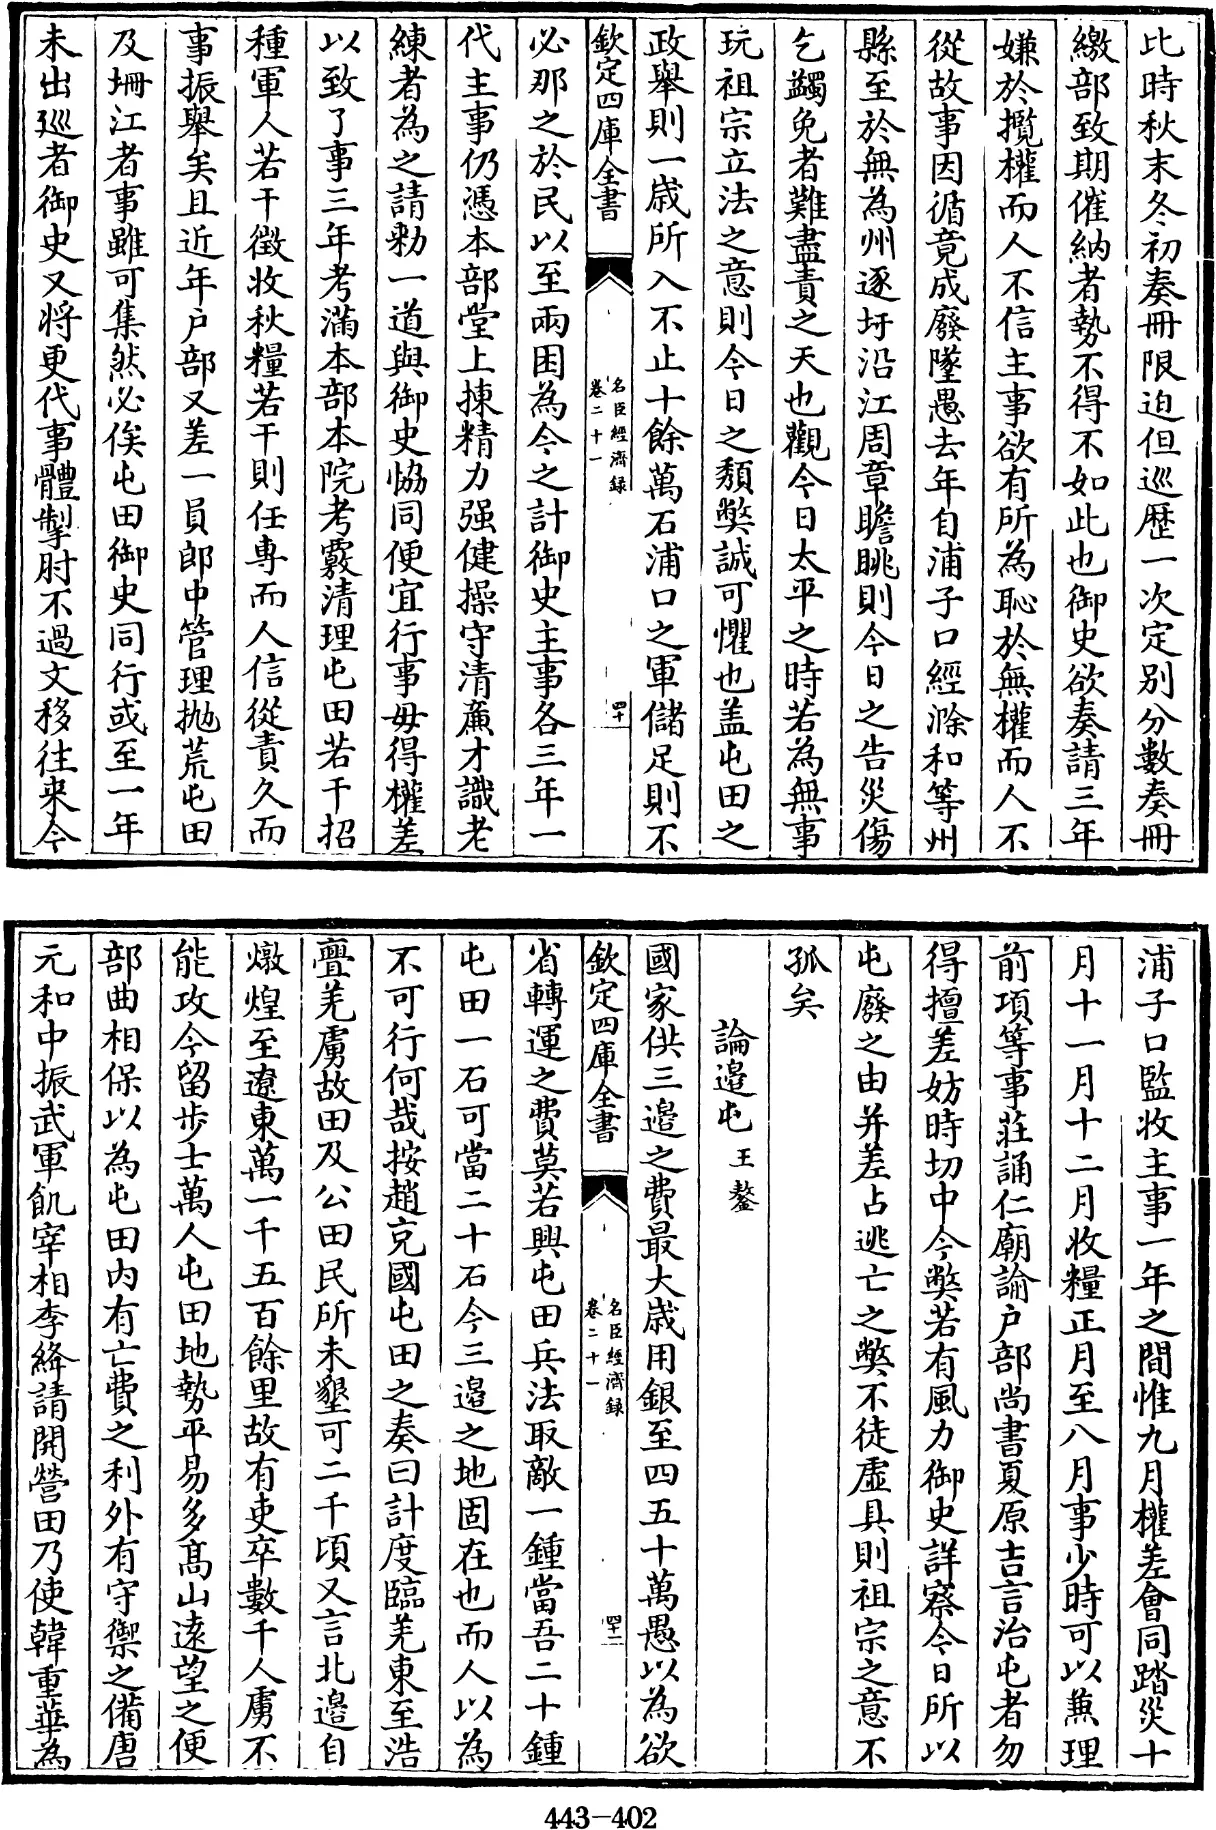 比時秋末冬初奏冊限迫但巡歴一次定别分數奏冊
繳部致期催納者勢不得不如此也御史欲奏請三年
嫌於攬權而人不信主事欲有所為恥於無權而人不
從故事因循竟成廢墜愚去年自浦子口經滁和等州
縣至於無為州逐圩沿江周章瞻眺則今日之告災傷
乞蠲免者難盡責之天也觀今日太平之時若為無事
玩祖宗立法之意則今日之頽弊誠可懼也盖屯田之
政舉則一歲所入不止十餘萬石浦口之軍儲足則不
欽定四庫全書
名臣經濟録
卷二十一
四十
必那之於民以至兩困為今之計御史主事各三年一
代主事仍憑本部堂上揀精力强健操守清亷才識老
練者為之請勅一道與御史恊同便宜行事毋得權差
以致了事三年考滿本部本院考覈清理屯田若干招
種軍人若干徵收秋糧若干則任專而人信從責久而
事振舉矣且近年户部又差一員郎中管理抛荒屯田
及坍江者事雖可集然必俟屯田御史同行或至一年
未出廵者御史又將更代事體掣肘不過文移往来今
浦子口監收主事一年之間惟九月權差會同踏災十
月十一月十二月收糧正月至八月事少時可以兼理
前項等事莊誦仁廟諭户部尚書夏原吉言治屯者勿
得擅差妨時切中今弊若有風力御史詳察今日所以
屯廢之由并差占逃亡之弊不徒虚具則祖宗之意不
孤矣
論邉屯 王鏊
國家供三邉之費最大歲用銀至四五十萬愚以為欲
欽定四庫全書
名臣經濟録
卷二十一
四十一
省轉運之費莫若興屯田兵法取敵一鍾當吾二十鍾
屯田一石可當二十石今三邉之地固在也而人以為
不可行何哉按趙充國屯田之奏曰計度臨羌東至浩
亹羌虜故田及公田民所未墾可二千頃又言北邉自
燉煌至遼東萬一千五百餘里故有吏卒數千人虜不
能攻今留步士萬人屯田地勢平易多高山遠望之便
部曲相保以為屯田内有亡費之利外有守禦之備唐
元和中振武軍飢宰相李絳請開營田乃使韓重華為
443-402